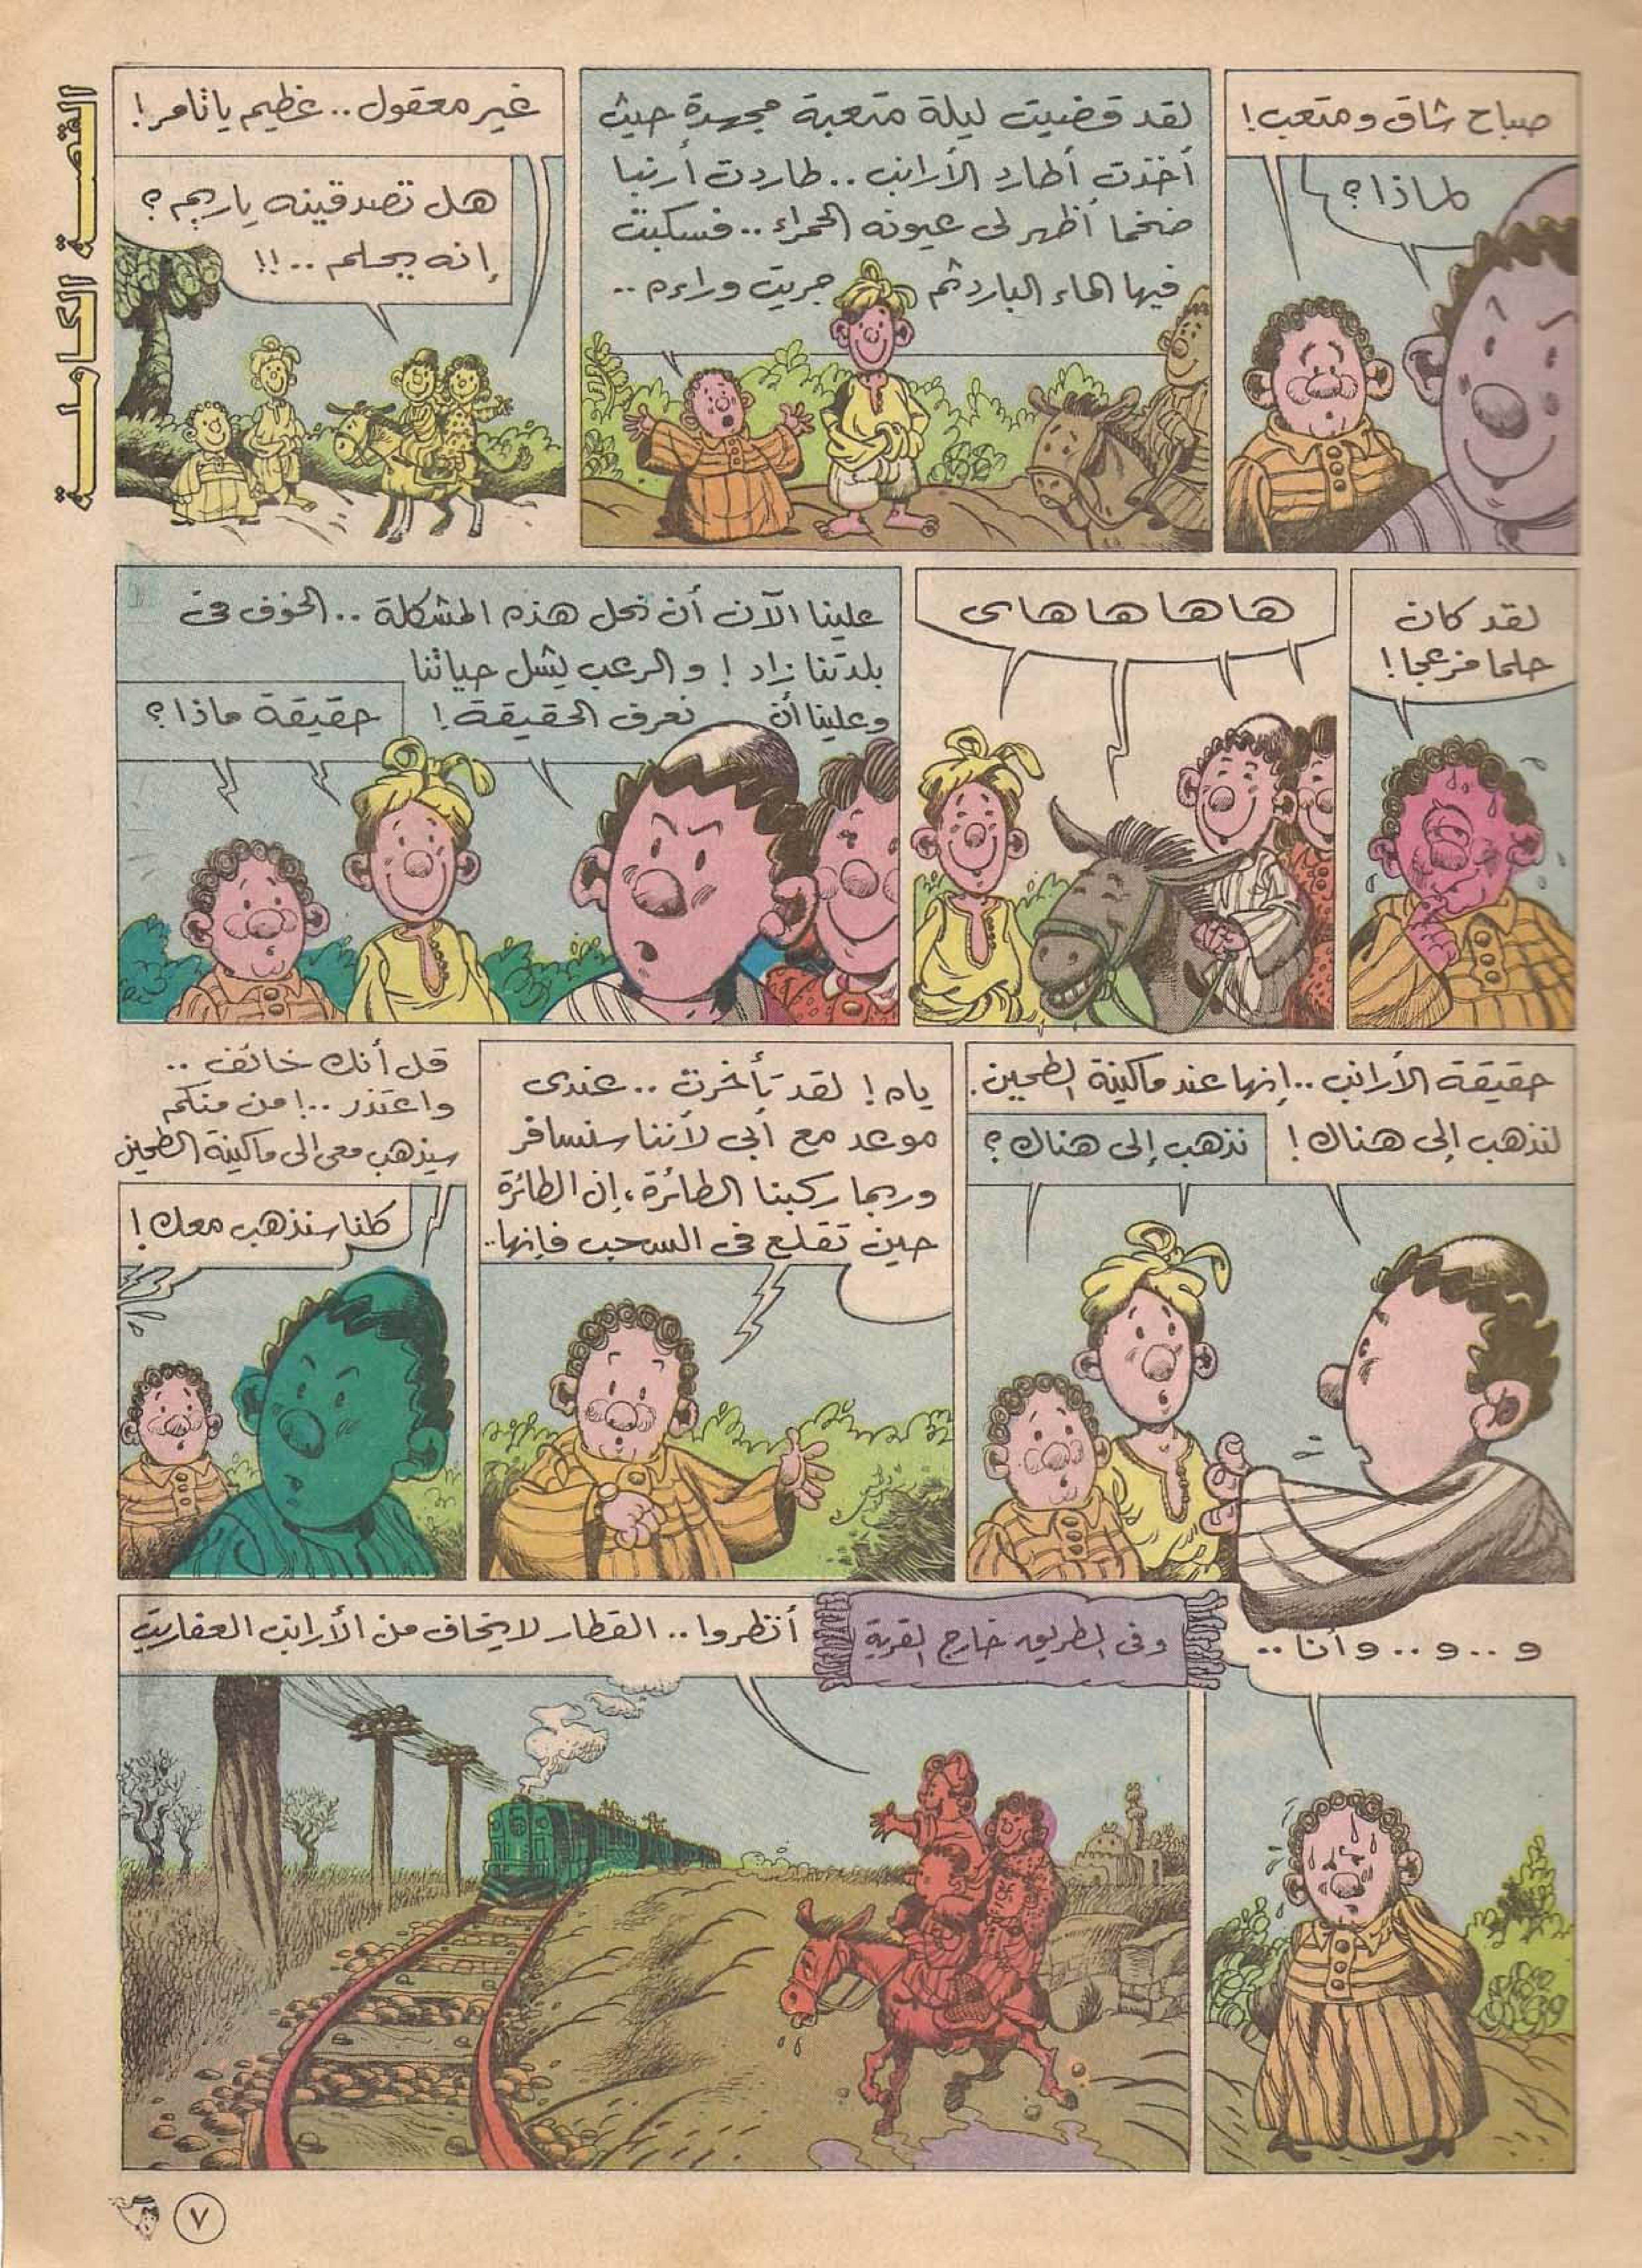 القصة الكاملة
صباح شاق ومتعب!
لماذا؟
لقد قضيت ليلة متعبة مجهدة حيث
أخذت أطارد الأرانب.. طاردت أرنبا
ضخما أظهر لى عيونه الحمراء.. فسكبت
فيها الماء البارد ثم جريت وراءه..
غير معقول.. عظيم يا تامر!
هل تصدقينه يا ريم؟
إنه يحلم..!!
لقد كان
حلما مزعجا!
هاهاهاهاى
علينا الآن أن نحل هذه المشكلة.. الخوف فى
بلدتنا زاد! والرعب يشل حياتنا
وعلينا أن نعرف الحقيقة!
حقيقة ماذا؟
حقيقة الأرانب.. إنها عند ماكينة الطحين.
لنذهب إلى هناك!
نذهب إلى هناك؟
ياه! لقد تأخرت.. عندى
موعد مع أبى لأننا سنسافر
وربما ركبنا الطائرة، إن الطائرة
حين تقلع فى السحب فإنها..
قل أنك خائف..
واعتذر..! من منكم
سيذهب معى إلى ماكينة الطحين
كلنا سنذهب معك!
و..و.. وأنا..
وفى الطريق خارج القرية
أنظروا.. القطار لا يخاف من الأرانب العفاريت
٧